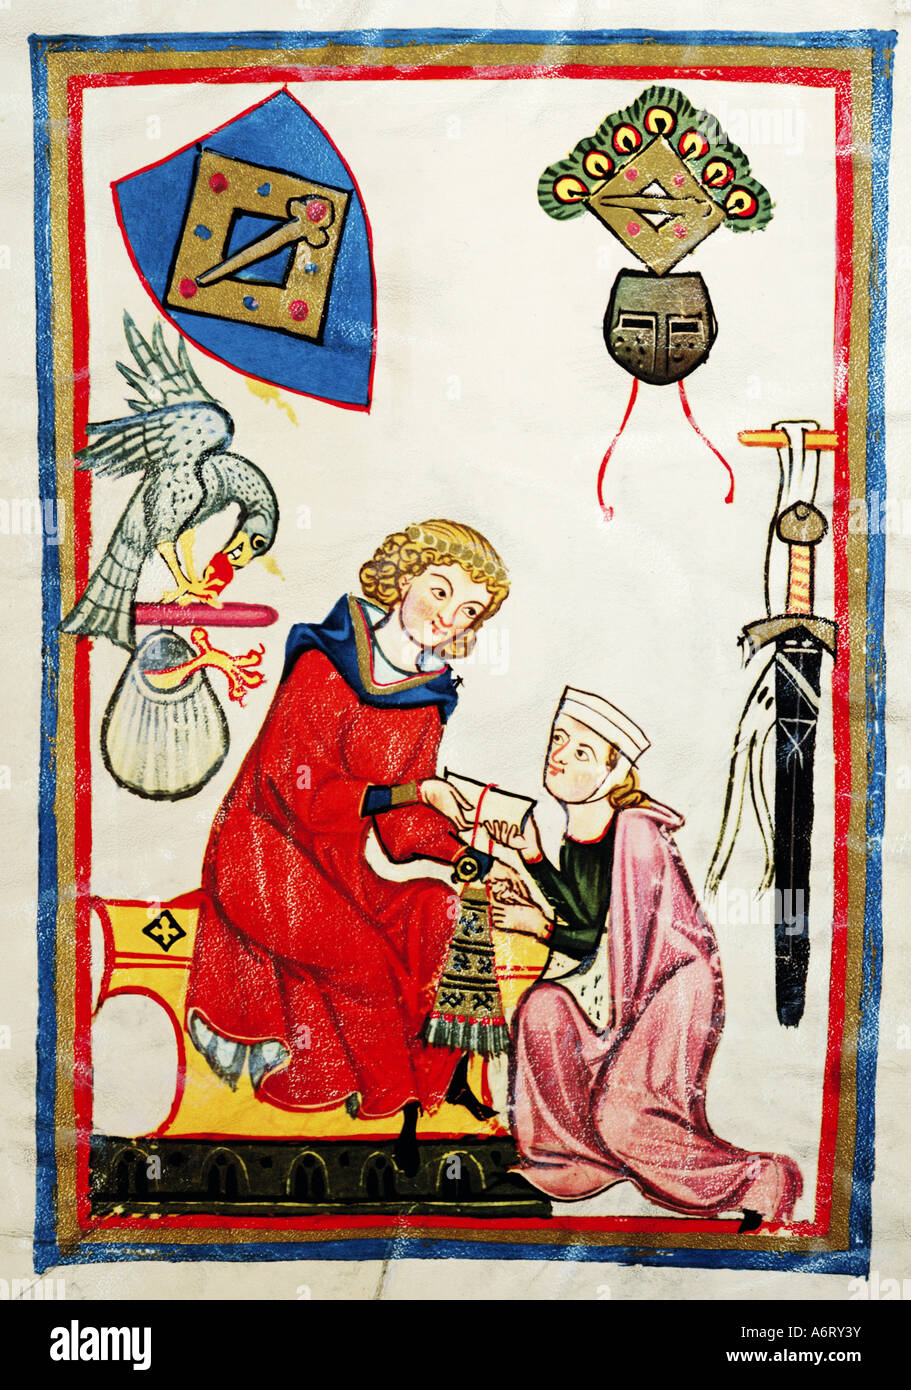 alamy
Image ID: A6RY3Y
www.alamy.com